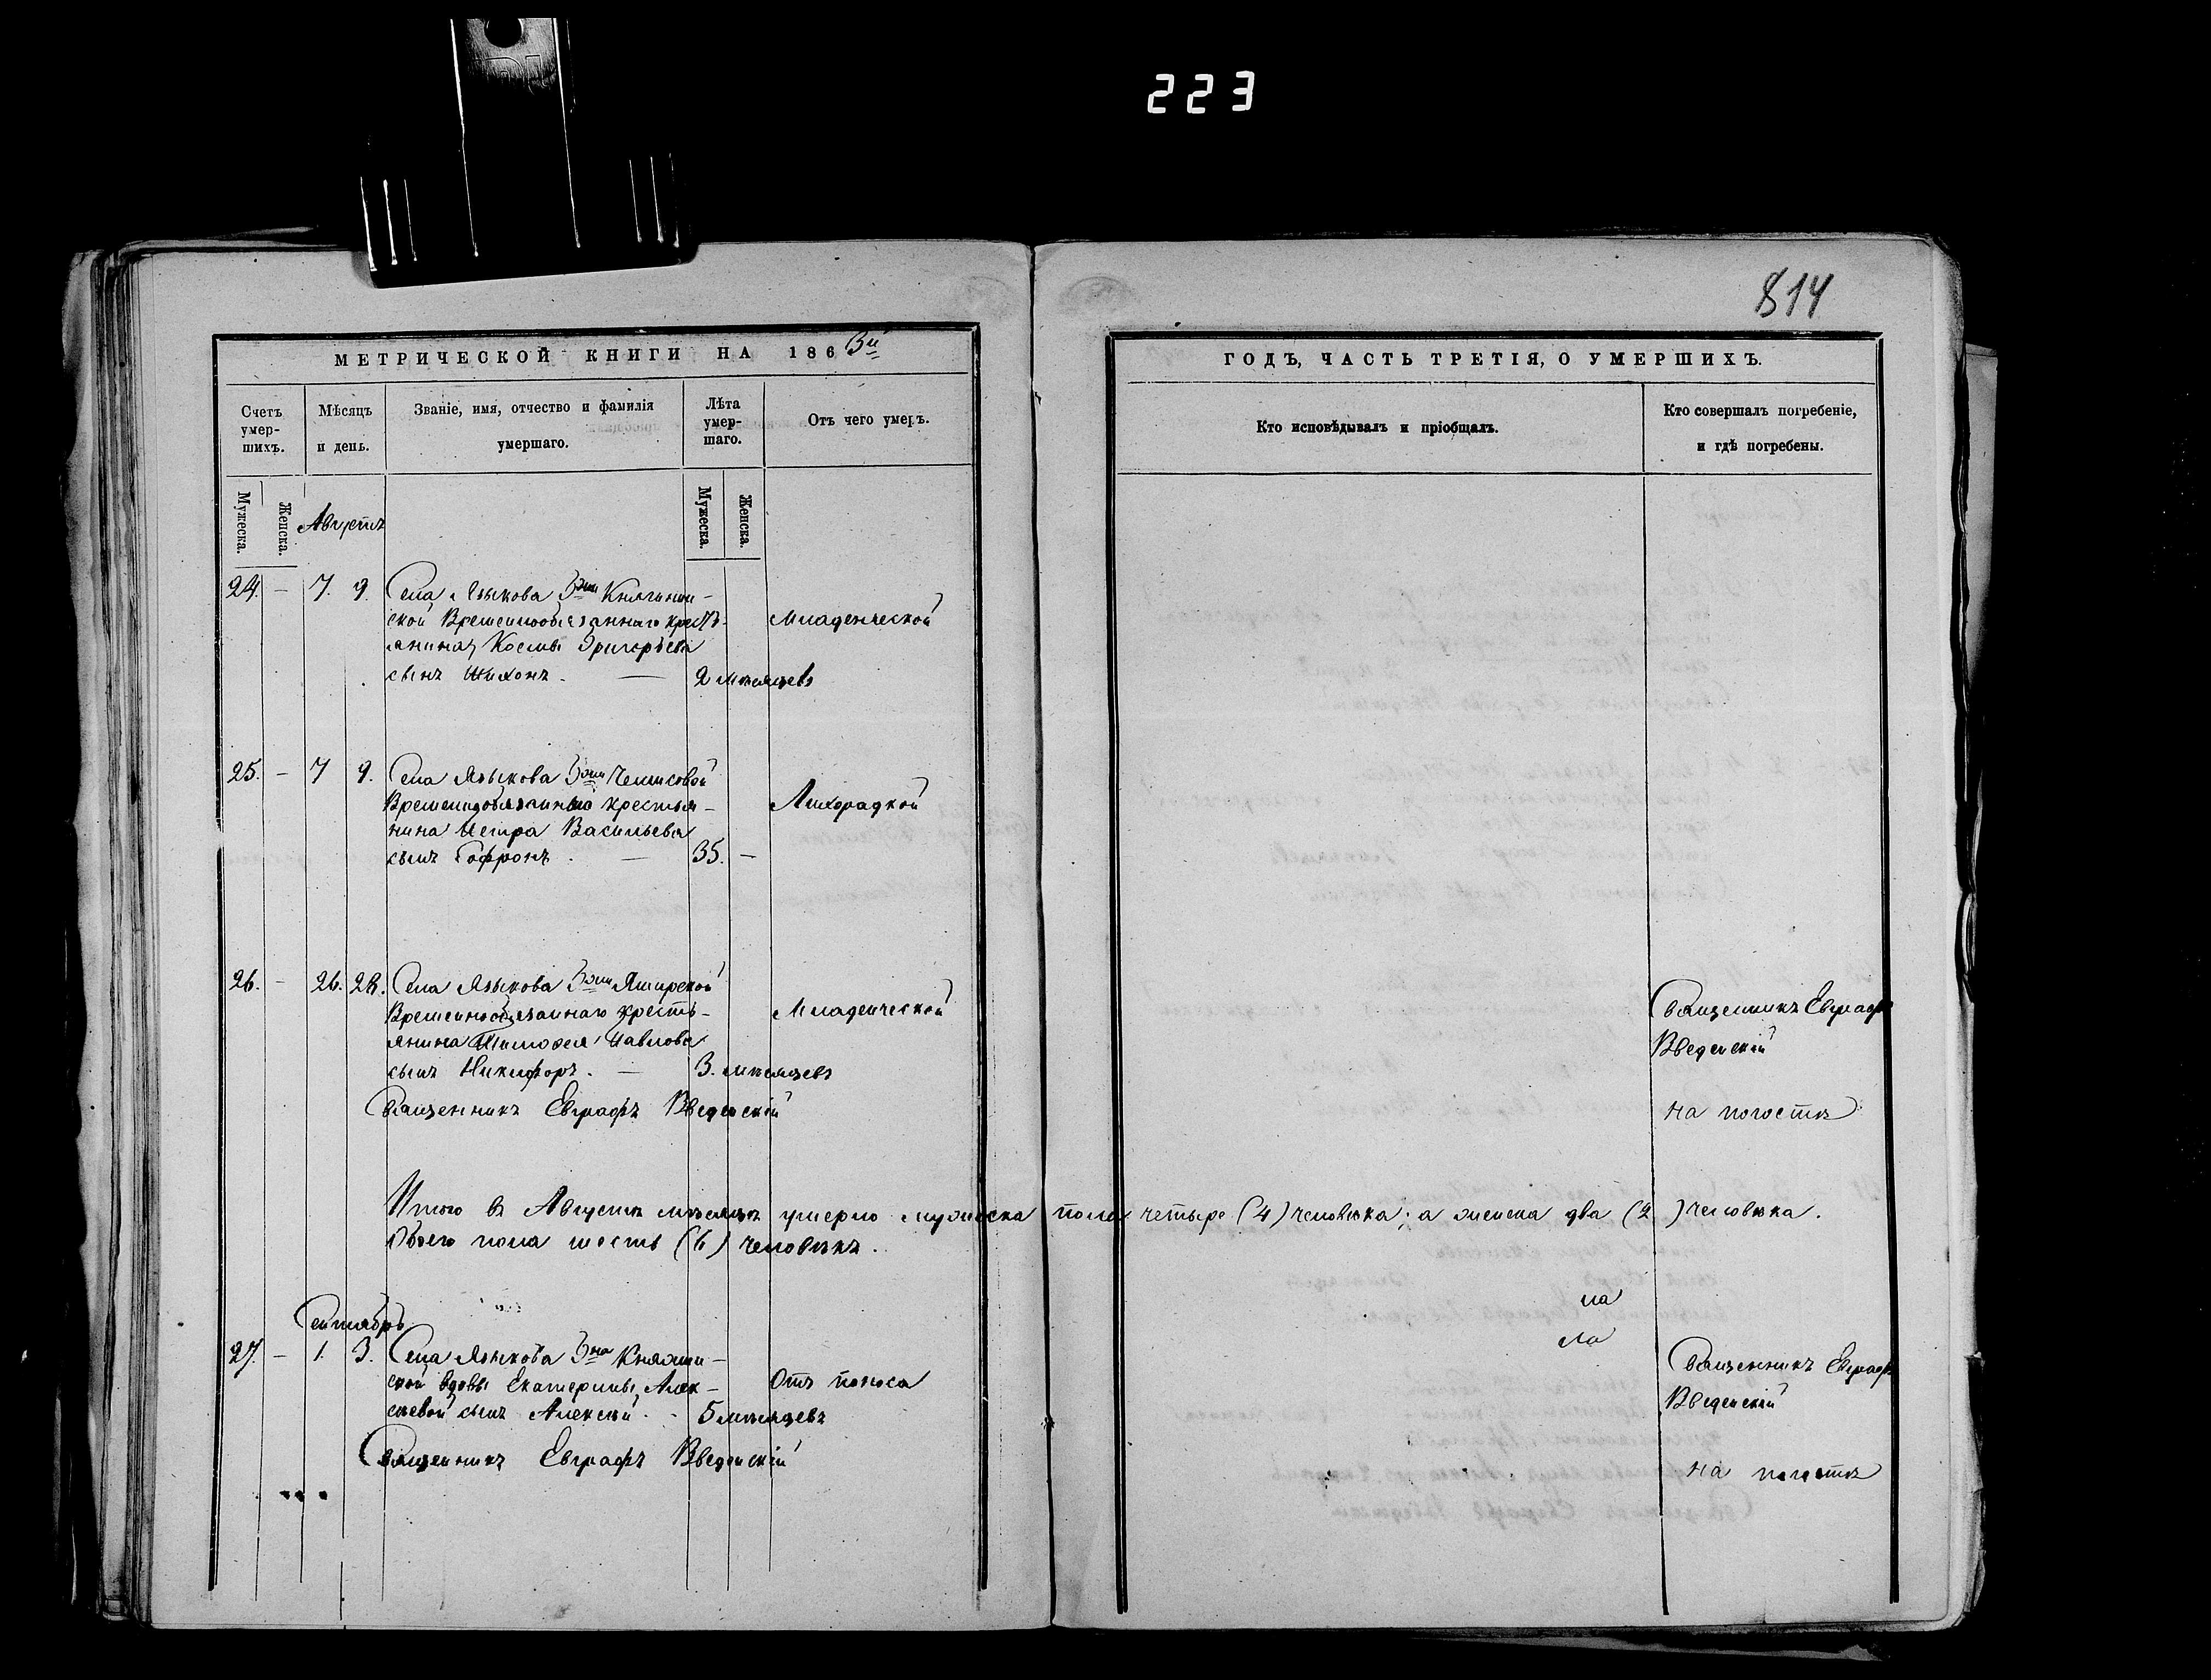 223
814
МЕТРИЧЕСКОЙ КНИГИ НА 1863й
Счетъ умер-шихъ.
Мѣсяцъ и день.
Званіе, имя, отчество и фамилія умершаго.
Лѣта умер-шаго.
Отъ чего умеръ.
Мужеска.
Женска.
Августъ
Мужеска.
Женска.
24. – 7. 9. Села Языкова
ской Временнообязаннаго кресть- Младенческой
янина Космы Григорьева
сынъ Тихонъ. — 2 мѣсяцевъ
25. – 7 9. Села Языкова
Временнообязаннаго крестья- Лихорадкой
нина Петра Васильева
сынъ Софронъ. — 35. –
26. – 26. 28. Села Языкова
Временнообязаннаго кресть- Младенческой
янина Тимофея Павлова
сынъ Никифоръ. — 3. мѣсяцевъ
Священникъ Евграфъ Введенскій
Итого въ Августѣ мѣсяцѣ умерло мужеска пола четыре (4) человѣка; а женска два (2) человѣка.
Обоего пола шесть (6) человѣкъ.
Сентябрь
27. – 1. 3. Села Языкова
ской вдовы Екатерины Алек- Отъ поноса
сѣевой сынъ Алексѣй. - 5 мѣсяцевъ
Священникъ Евграфъ Введенскій
ГОДЪ, ЧАСТЬ ТРЕТІЯ, О УМЕРШИХЪ.
Кто исповѣдывалъ и пріобщалъ.
Кто совершалъ погребеніе,
и гдѣ погребены.
Священникъ Евграфъ
Введенскій
на погостѣ
Священникъ Евграфъ
Введенскій
на погостѣ